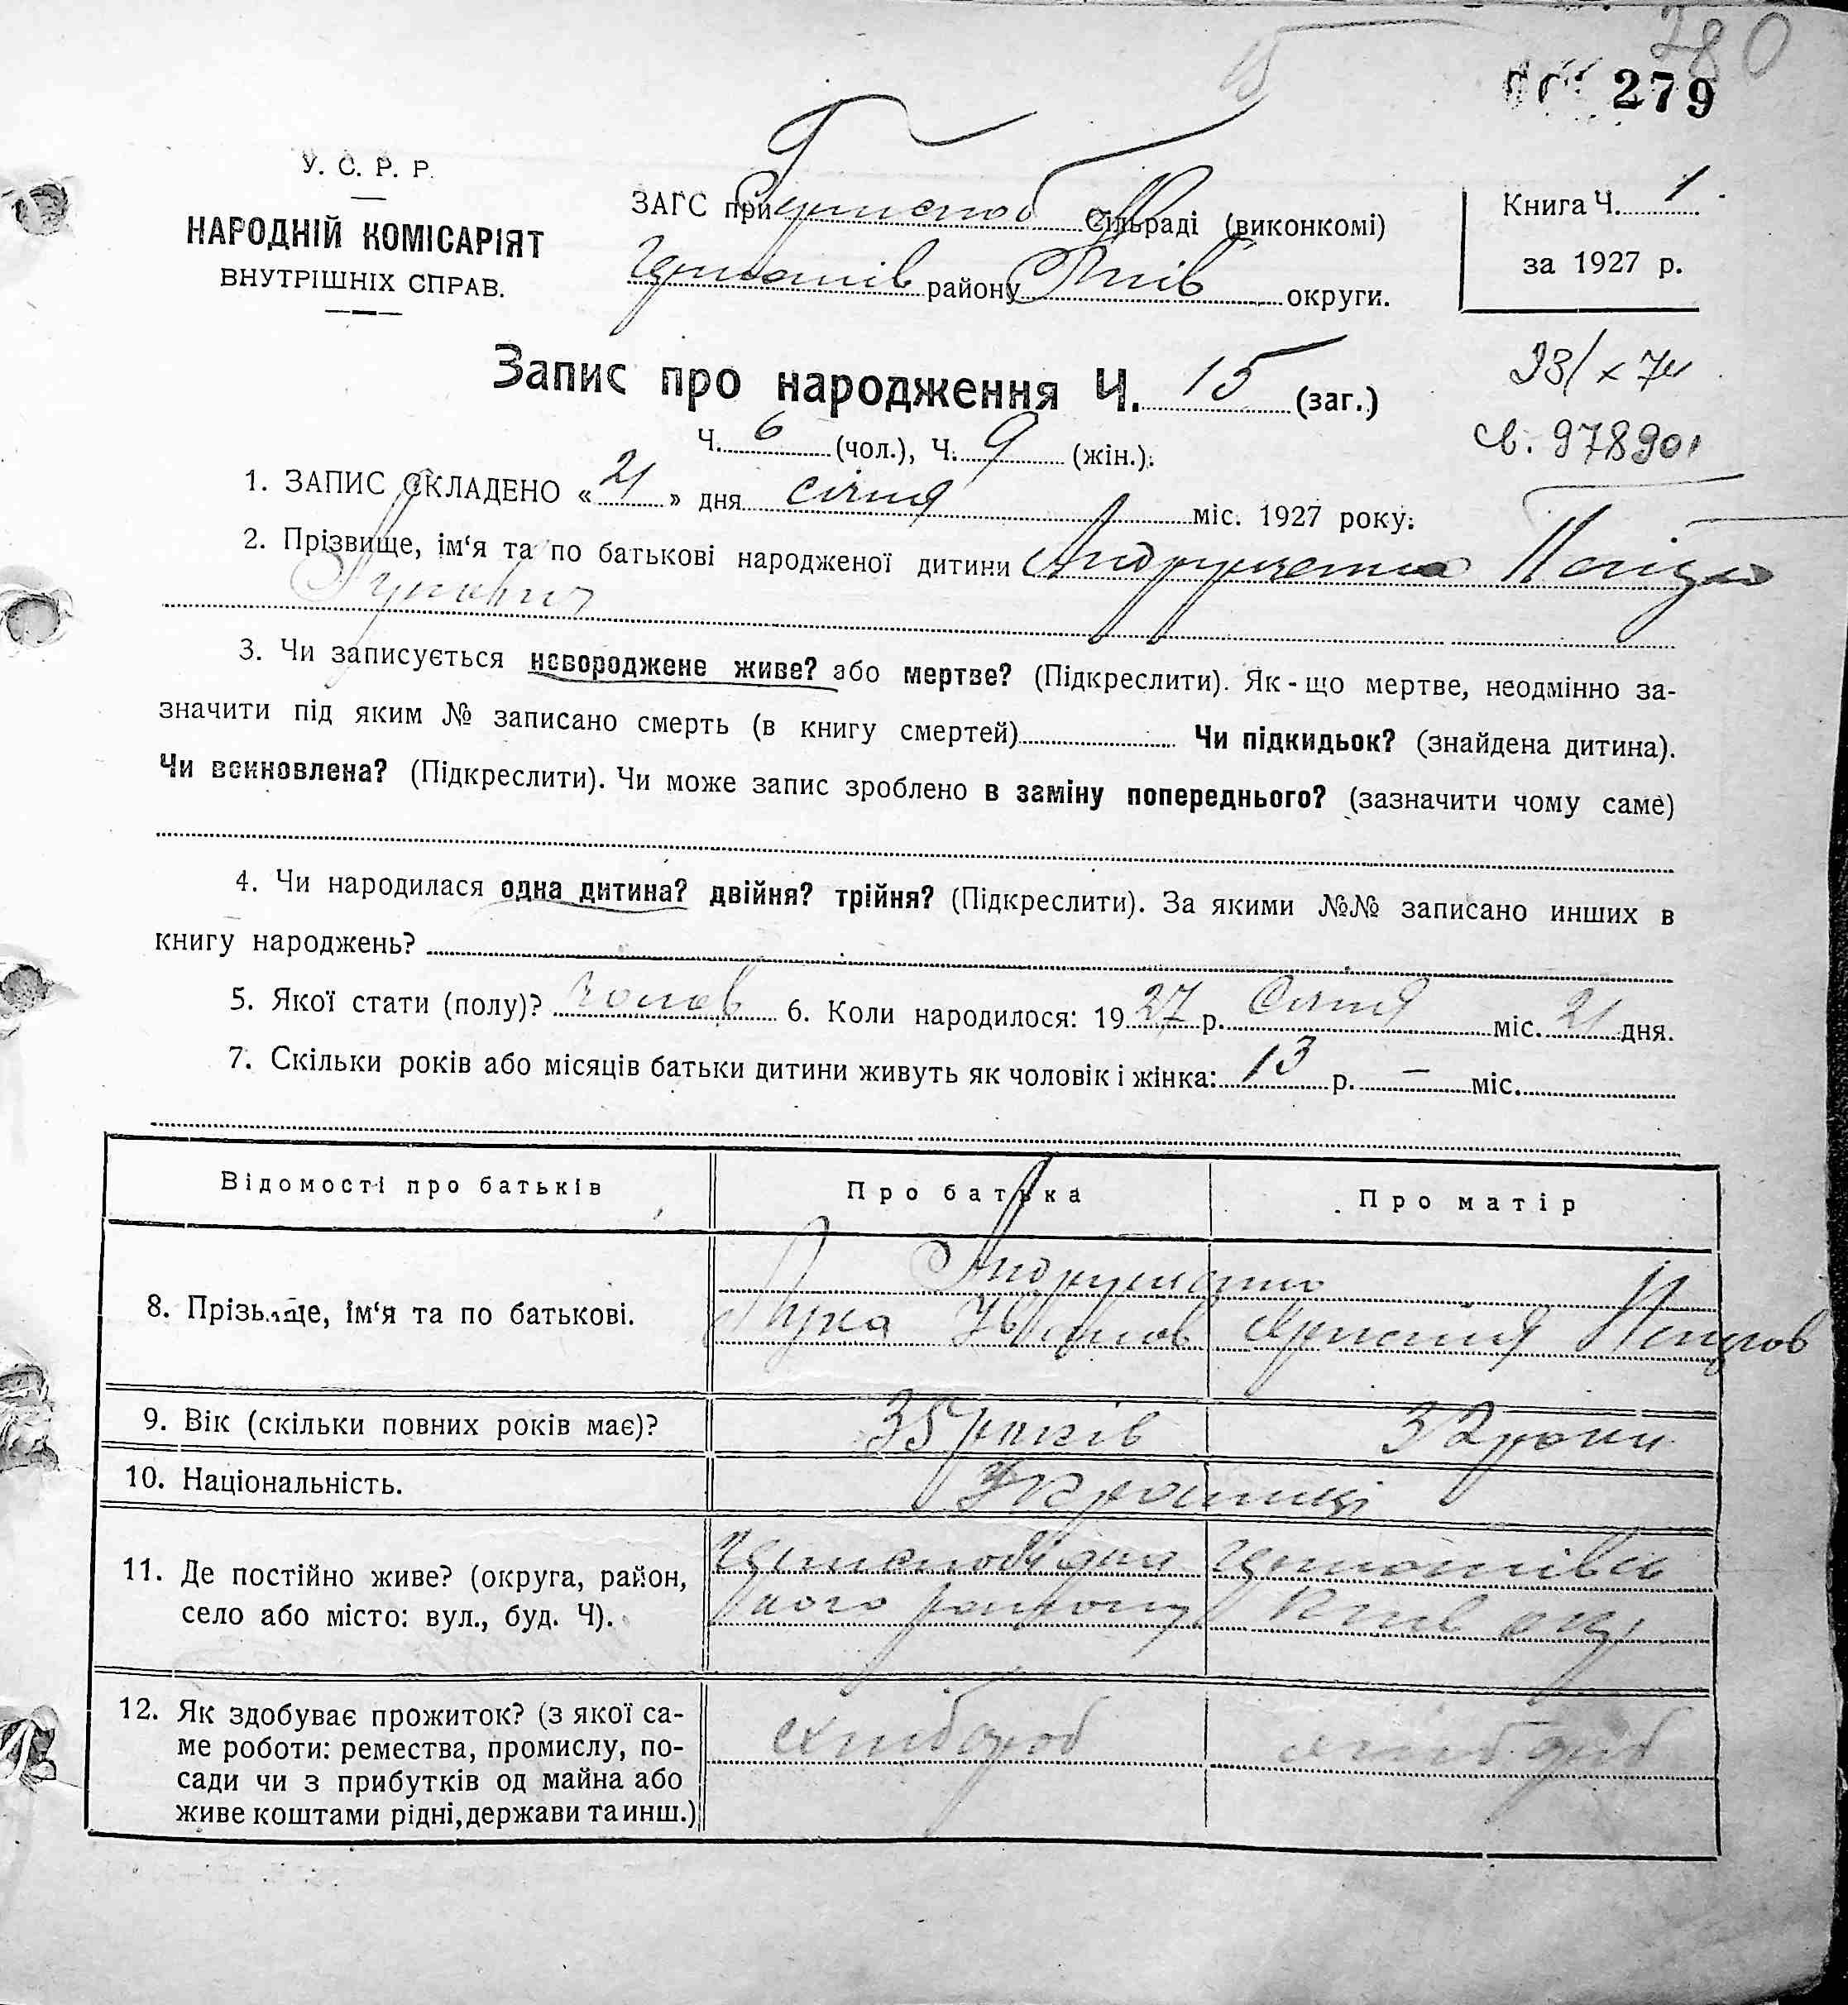 280
279
У. С. Р. Р.
НАРОДНІЙ КОМІСАРІЯТ
ВНУТРІШНІХ СПРАВ.
ЗАГС при Сільраді (виконкомі)
району Київ округи.
Книга Ч. 1
за 1927 р.
Запис про народження Ч. 15 (заг.)
Ч. 6 (чол.), Ч. 9 (жін.).
св. 978901
1. ЗАПИС СКЛАДЕНО « 21 » дня січня міс. 1927 року.
2. Прізвище, ім‘я та по батькові народженої дитини Андрущенко
Лукович
3. Чи записується новороджене живе? або мертве? (Підкреслити). Як-що мертве, неодмінно за-
значити під яким № записано смерть (в книгу смертей) Чи підкидьок? (знайдена дитина).
Чи всиновлена? (Підкреслити). Чи може запис зроблено в заміну попереднього? (зазначити чому саме)
4. Чи народилася одна дитина? двійня? трійня? (Підкреслити). За якими №№ записано инших в
книгу народжень?
5. Якої стати (полу)? чолов 6. Коли народилося: 1927 р. Січня міс. 21 дня.
7. Скільки років або місяців батьки дитини живуть як чоловік і жінка: 13 р. — міс.
Відомості про батьків Про батька Про матір
8. Прізвище, ім‘я та по батькові.
Андрущенко
Лука Іванов
9. Вік (скільки повних років має)? 35 років 32 роки
10. Національність. Українці
11. Де постійно живе? (округа, район,
село або місто: вул., буд. Ч).
кого району Київ окр
12. Як здобуває прожиток? (з якої са-
ме роботи: ремества, промислу, по-
сади чи з прибутків од майна або
живе коштами рідні, держави та инш.)
хлібороб хлібороб